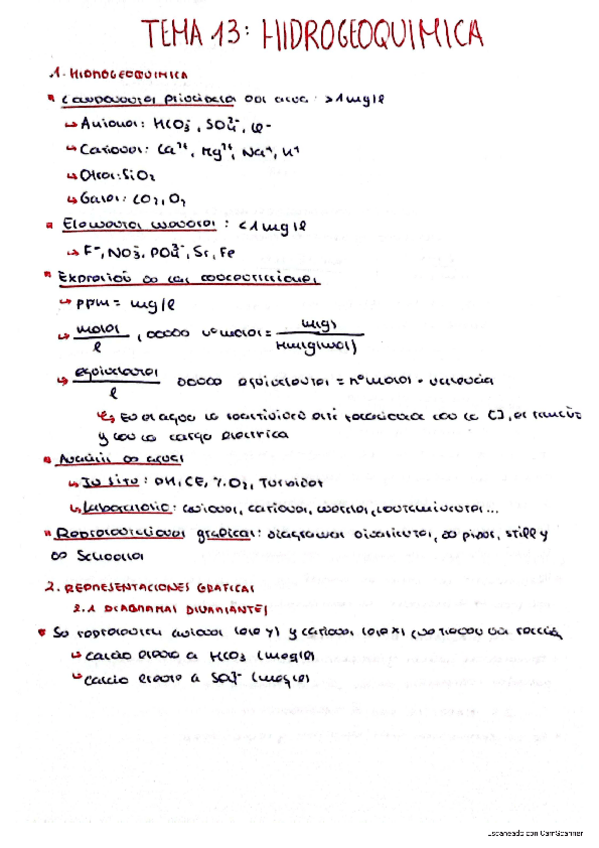 TEMA 13: HIDROGEOQUIMICA
1. HIDROGEOQUIMICA
Componentes principales del agua: >1mg/l
↳ Aniones: HCO3-, SO4 2-, Cl-
↳ Cationes: Ca2+, Mg2+, Na+, K+
↳ Otros: SiO2
↳ Gases: CO2, O2
Elementos menores: <1mg/l
↳ F-, NO3-, PO4 3-, Sr, Fe
Expresión de las concentraciones
↳ ppm = mg/l
↳ moles / l, donde nº moles = m(g) / Mm(g/mol)
↳ equivalentes / l donde equivalentes = nº moles · valencia
↳ En el agua la está relacionada con la CE, es
y con la carga eléctrica
Análisis de aguas
↳ In situ: pH, CE, % O2, Turbidez
↳ Laboratorio: aniones, cationes, metales, contaminantes...
Representaciones graficas: diagramas de piper, stiff y
de Schoeller
2. REPRESENTACIONES GRAFICAS
2.1 DIAGRAMAS
Se representan aniones (eje y) y cationes (eje x)
↳ calcio frente a HCO3 (meq/l)
↳ calcio frente a SO4- (meq/l)
Escaneado con CamScanner